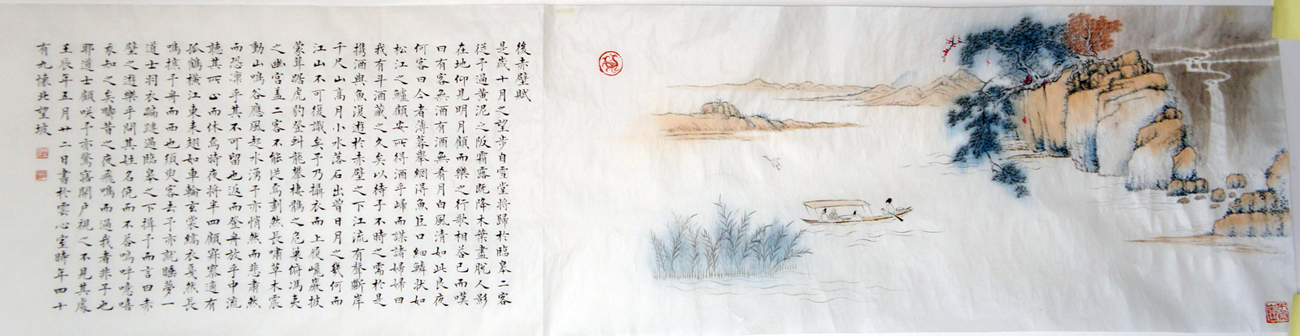 後赤壁賦
是歲十月之望步自雪堂將歸於臨皋二客
從予過黃泥之阪霜露既降木葉盡脫人影
在地仰見明月顧而樂之行歌相答已而嘆
曰有客無酒有酒無肴月白風清如此良夜
何客曰今者薄暮舉網得魚巨口細鱗狀如
松江之鱸顧安所得酒乎歸而謀諸婦婦曰
我有斗酒藏之久矣以待子不時之需於是
攜酒與魚復遊於赤壁之下江流有聲斷岸
千尺山高月小水落石出曾日月之幾何而
江山不可復識矣予乃攝衣而上履巉巖披
蒙茸踞虎豹登虯龍攀棲鶻之危巢俯馮夷
之幽宮蓋二客不能從焉劃然長嘯草木震
動山鳴谷應風起水湧予亦悄然而悲肅然
而恐凜乎其不可留也返而登舟放乎中流
聽其所止而休焉時夜將半四顧寂寥適有
孤鶴橫江東來翅如車輪玄裳縞衣戛然長
鳴掠予舟而西也須臾客去予亦就睡夢一
道士羽衣蹁躚過臨皋之下揖予而言曰赤
壁之遊樂乎問其姓名俛而不答嗚呼噫嘻
我知之矣疇昔之夜飛鳴而過我者非子也
耶道士顧笑予亦驚寤開戶視之不見其處
壬辰年五月廿二日書於雲心室時年四十
有九懷北望坡